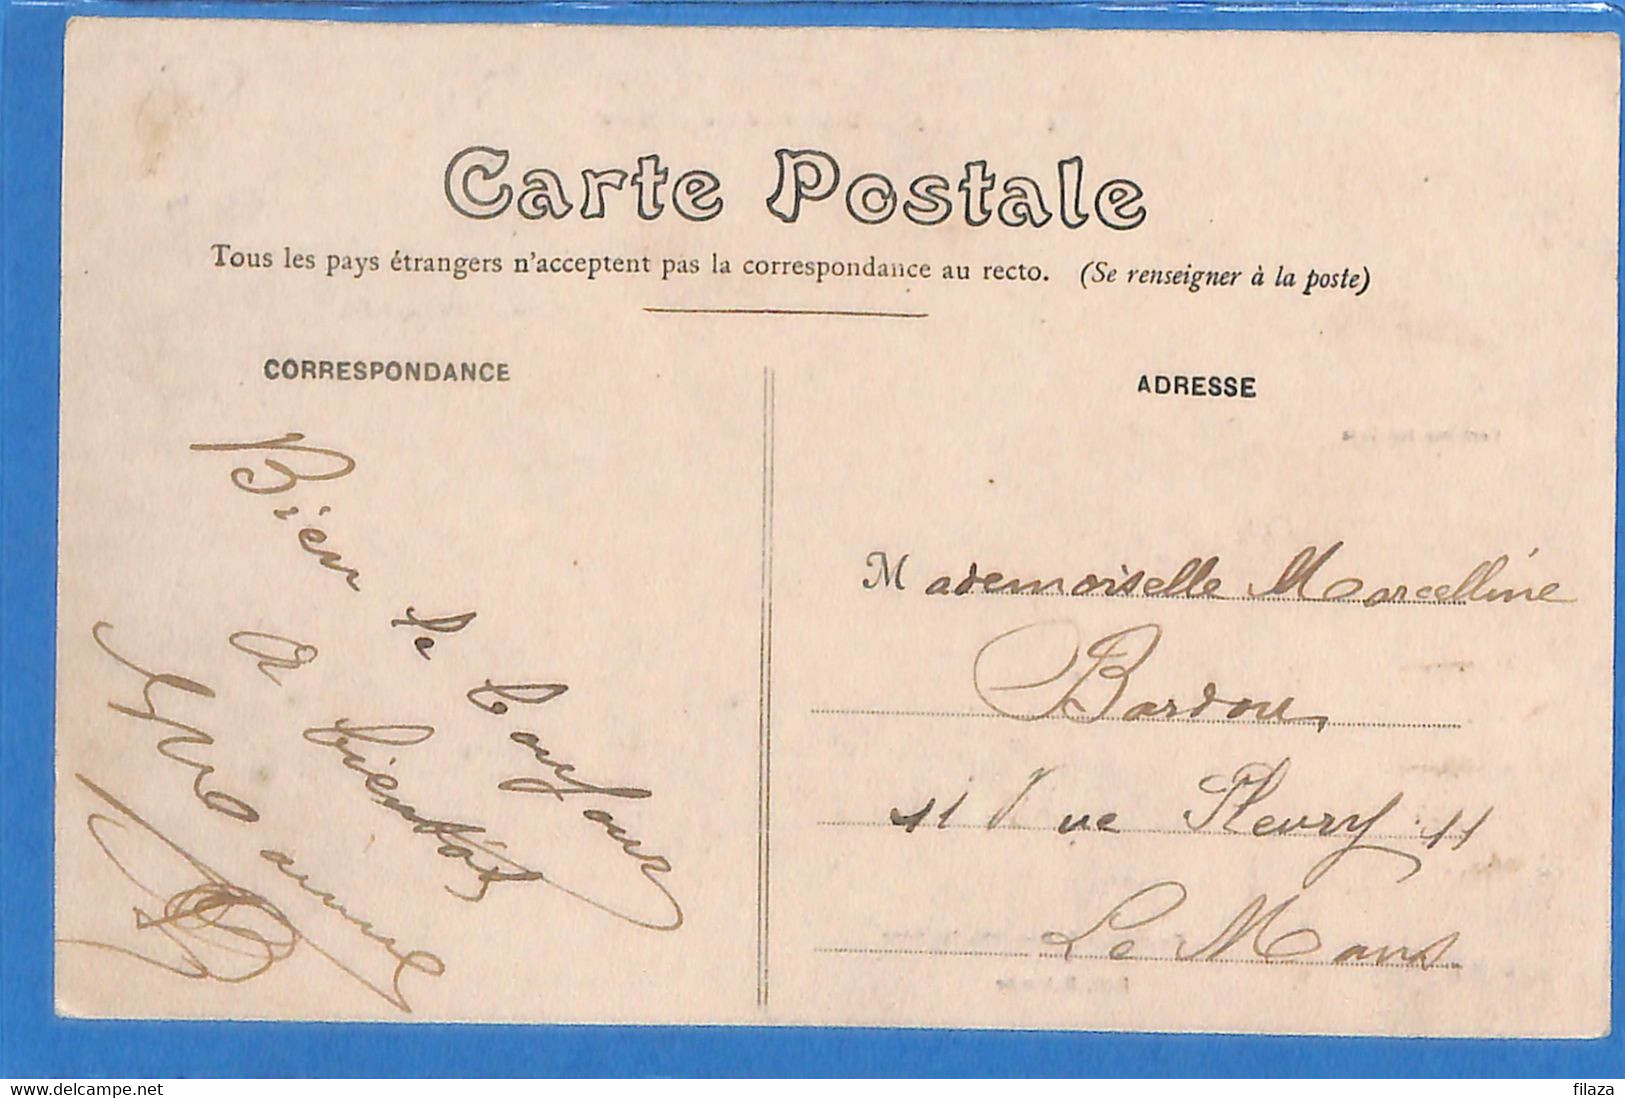 Carte Postale
Tous les pays étrangers n'acceptent pas la correspondance au recto. (Se renseigner à la poste)
CORRESPONDANCE
Bien le bonjour
A bientôt
ADRESSE
Mademoiselle Marcelline
Bardou
11 Rue Fleury 11
Le Mans
delcampe.net
filaza